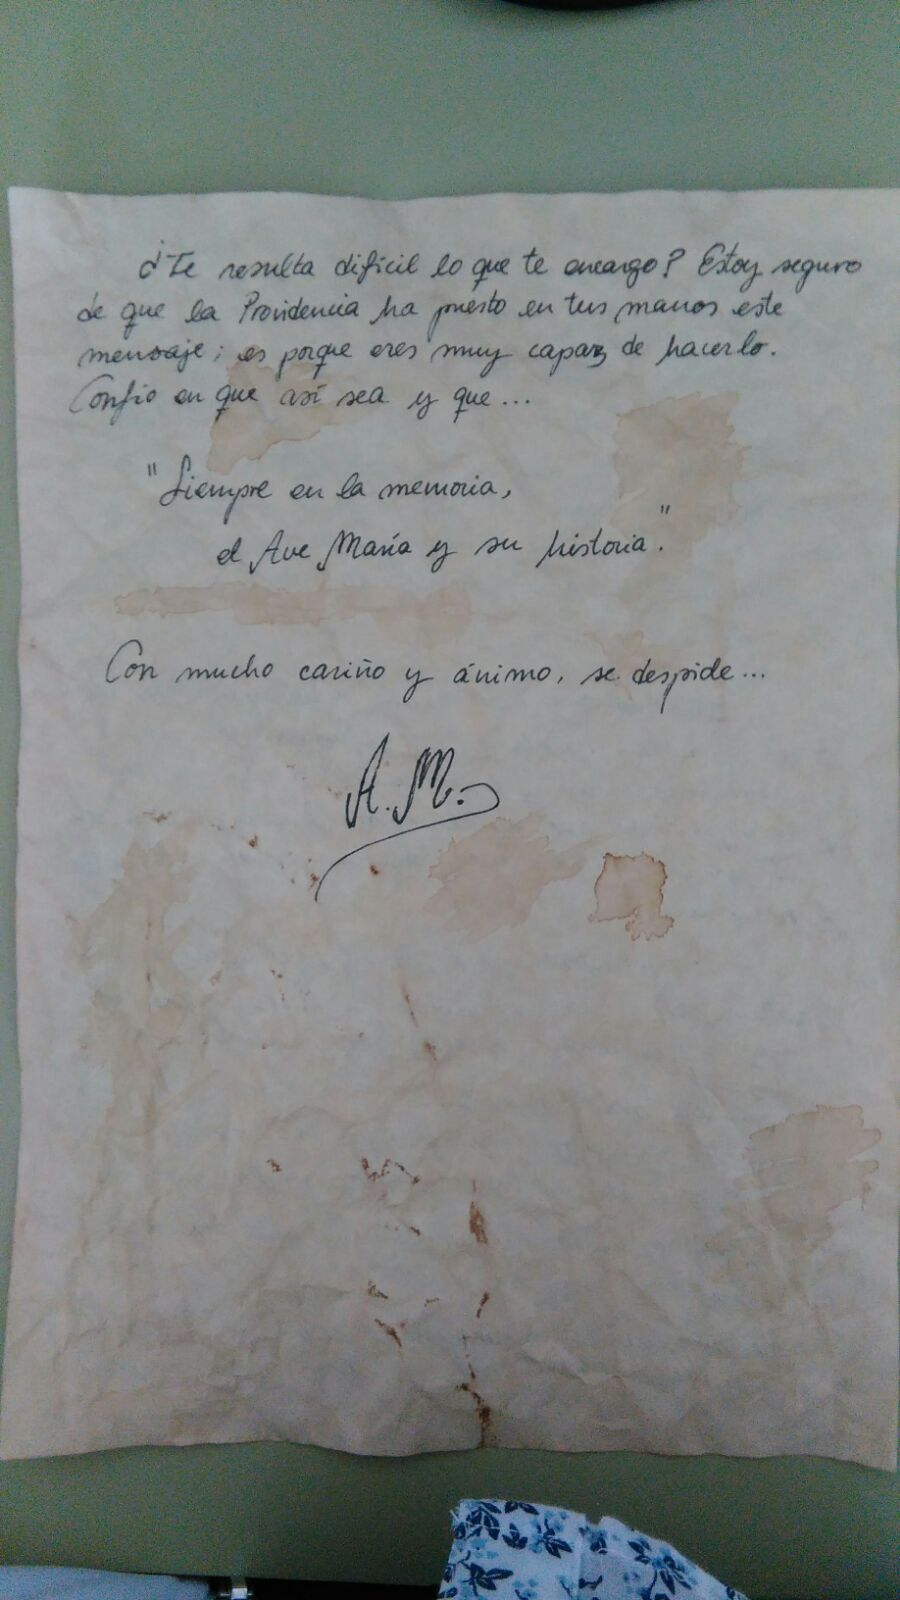 ¿Te resulta difícil lo que te encargo? Estoy seguro
de que la Providencia ha puesto en tus manos este
mensaje; es porque eres muy capaz de hacerlo.
Confío en que así sea y que...
"Siempre en la memoria,
el Ave María y su historia."
Con mucho cariño y ánimo, se despide...
A.M.